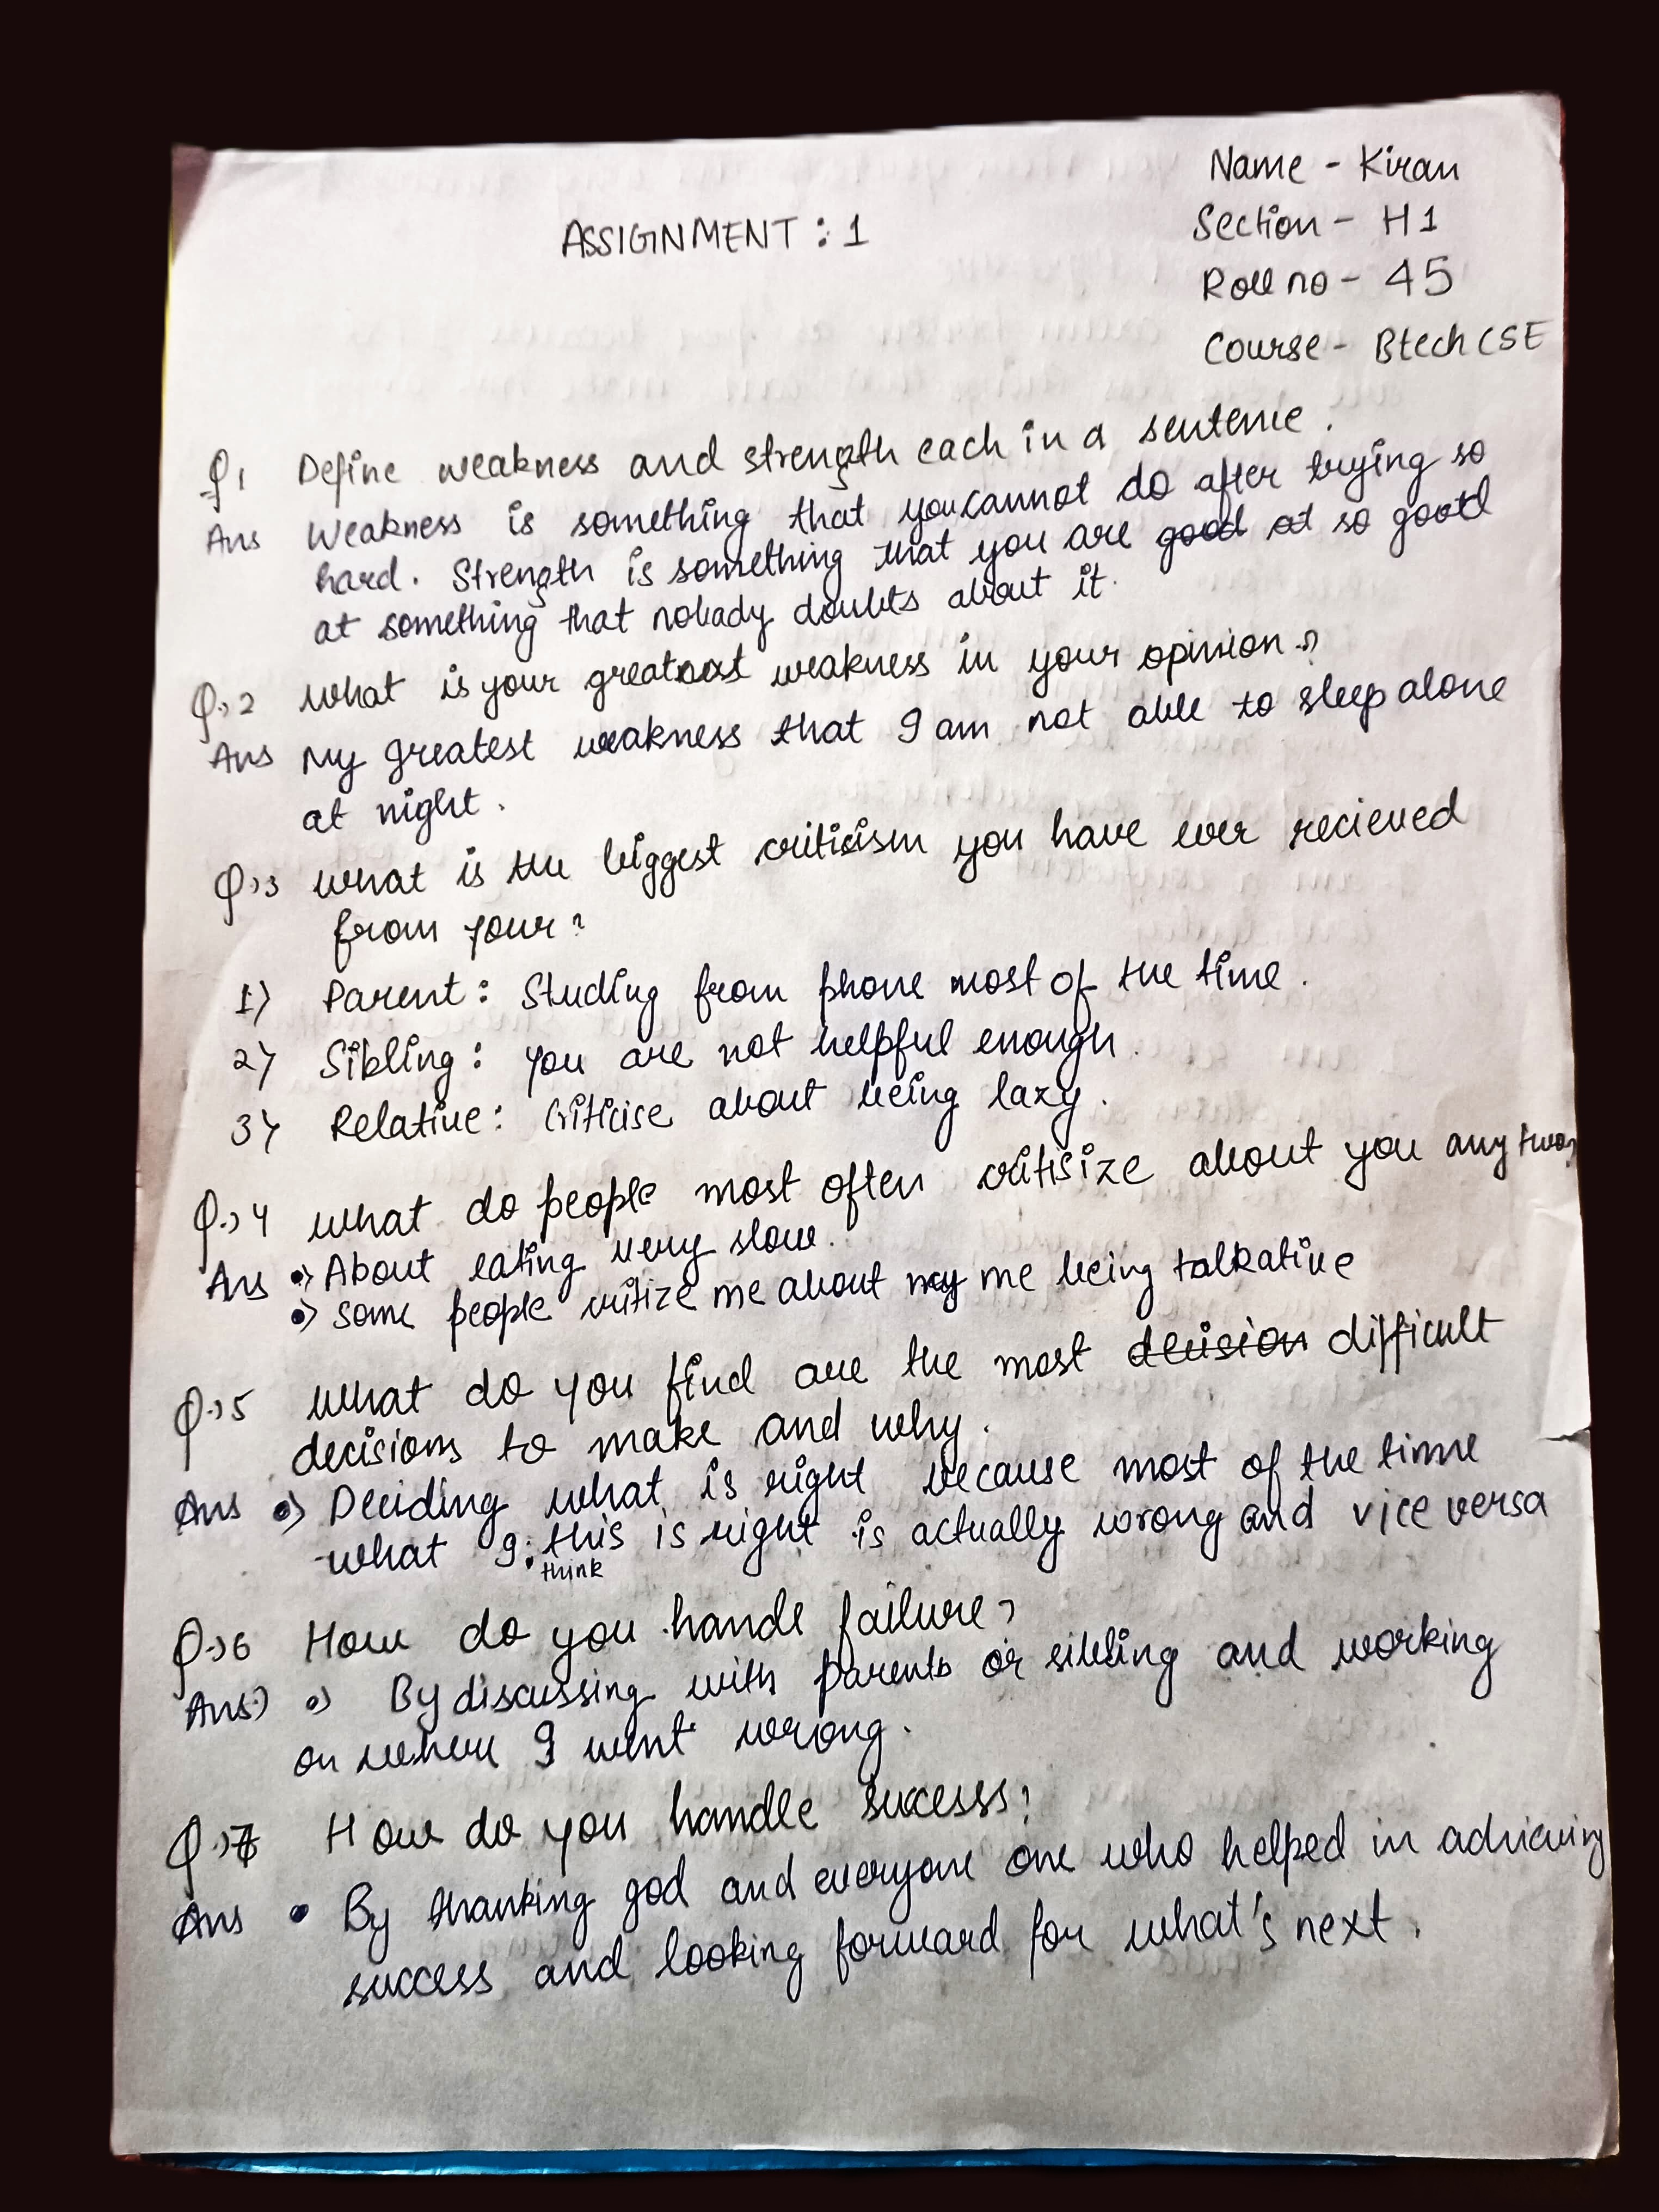 Name - Kiran
ASSIGNMENT : 1
Section - H1
Roll no - 45
Course - Btech CSE
Q1 Define weakness and strength each in a sentence.
Ans Weakness is something that you cannot do after trying so
hard. Strength is something that you are good at so good
at something that nobady doubts about it.
Q.2 What is your greatest weakness in your opinion ?
Ans My greatest weakness that I am not able to sleep alone
at night.
Q.3 What is the biggest criticism you have ever recieved
from your?
1) Parent: Studing from phone most of the time.
2) Sibling: you are not helpful enough.
3) Relative: Criticise about being lazy.
Q.4 What do people most often critisize about you any two?
Ans •) About eating very slow.
•) Some people critize me about my me being talkative
Q.5 What do you find are the most decision difficult
decisions to make and why.
Ans •) Deciding what is right because most of the time
what I this is right is actually wrong and vice versa
think
Q.6 How do you handl failure?
Ans) •) By discussing with parents or sibling and working
on where I went wrong.
Q.7 How do you handle success?
Ans • By thanking god and everyone one who helped in achieving
success and looking forward for what's next.